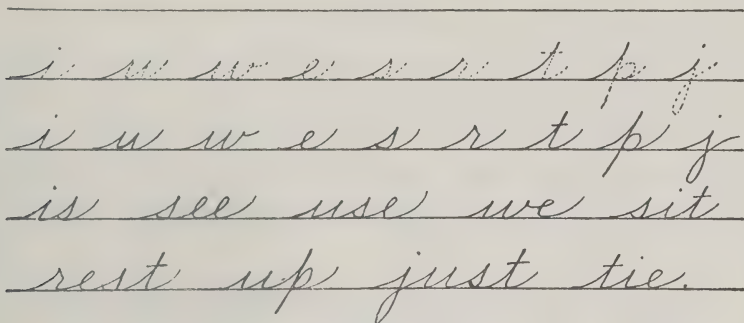 i u w e s r t p j
i u w e s r t p j
is see use we sit
rest up just tie.